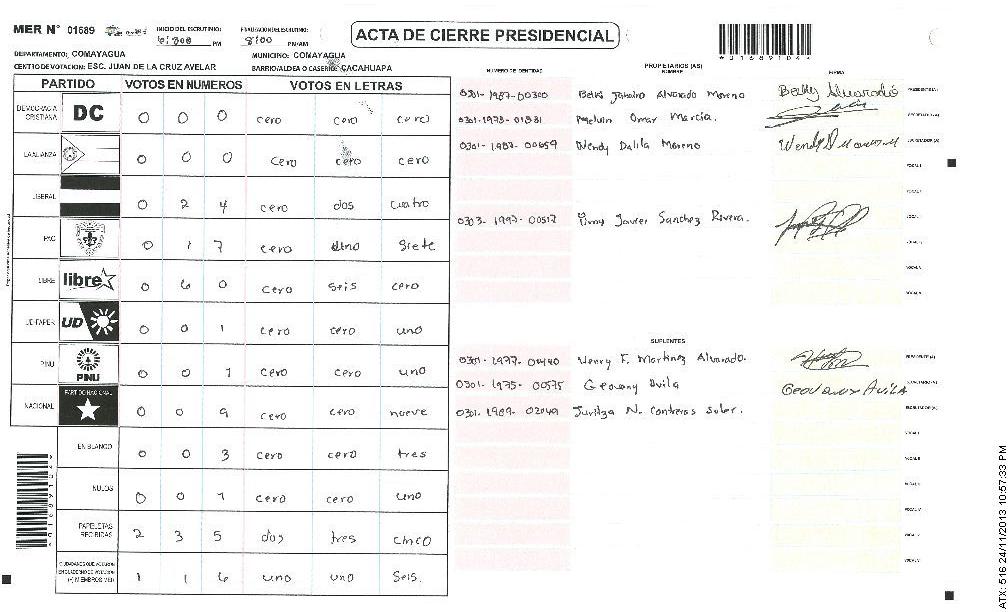 MER N° 01689 INICIO DEL ESCRUTINIO: PM PM/AM 8:00
ACTA DE CIERRE PRESIDENCIAL
DEPARTAMENTO: COMAYAGUA MUNICIPIO: COMAYAGUA
CENTRO DE VOTACION: ESC. JUAN DE LA CRUZ AVELAR BARRIO/ALDEA O CASERIO: CACAHUAPA
PARTIDO VOTOS EN NUMEROS VOTOS EN LETRAS
DEMOCRACIA CRISTIANA DC 0 0 0 cero cero cero
LA ALIANZA 0 0 0 cero cero cero
LIBERAL 0 2 4 cero dos cuatro
PAC 0 1 7 cero uno siete
LIBRE libre 0 6 0 cero seis cero
UD-FAPER UD 0 0 1 cero cero uno
PINU PINU 0 0 1 cero cero uno
NACIONAL PARTIDO NACIONAL 0 0 9 cero cero nueve
EN BLANCO 0 0 3 cero cero tres
NULOS 0 0 1 cero cero uno
PAPELETAS RECIBIDAS 2 3 5 dos tres cinco
CIUDADANOS QUE VOTARON
(+) MIEMBROS MER 1 1 6 uno uno seis.
NUMERO DE IDENTIDAD PROPIETARIOS (AS) NOMBRE FIRMA
0301-1987-00300 Alvarado Moreno Alvarado PRESIDENTE(A)
Melvin Omar Marcia. SECRETARIO(A)
0301-1987-00659 Wendy Dalila Moreno Wendy D Moreno ESCRUTADOR(A)
VOCAL I
0303-1997-00517 Javier Sanchez Rivera.
SUPLENTES
0301-1977-00440 Henry F. Martinez Alvarado. PRESIDENTE(A)
0301-1975-00575 Geovany Avila Geovany Avila SECRETARIO(A)
0301-1989-02049 Juritza N. Contreras Soler. ESCRUTADOR(A)
VOCAL I
ATX: 516 24/11/2013 10:57:33 PM